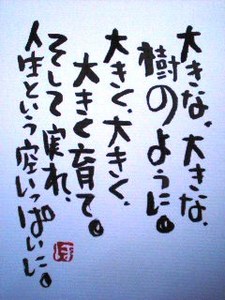 大きな、大きな、
樹のように。
大きく、大きく、
大きく育て。
そして実れ、
人生という空いっぱいに。